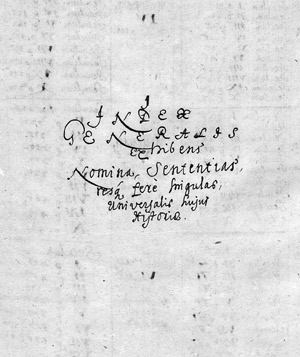 INDEX
GENERALIS
exhibens
Nomina, Sententias,
resq́ ferè singulas,
Universalis hujus
Historiæ.